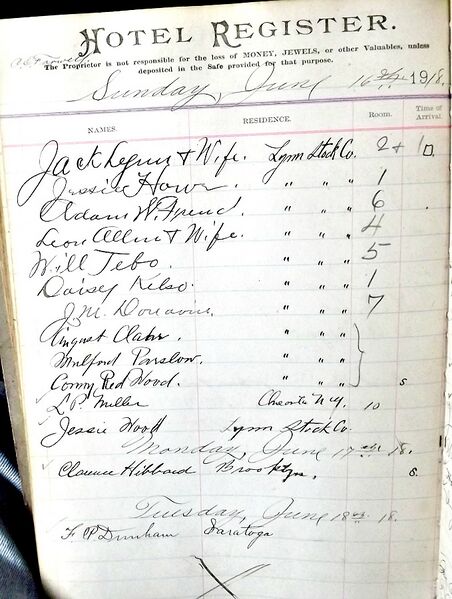 HOTEL REGISTER.
The Proprietor is not responsible for the loss of MONEY, JEWELS, or other Valuables, unless
deposited in the Safe provided for that purpose.
Sunday, June 16th 1918.
NAMES. RESIDENCE. Room. Time of Arrival
Jack Lynn & Wife. Lynn Stock Co. 2
Jessie Howe. " " " 1
Adam W. Friend. " " " 6
Leon Allen & Wife. " " " 4
Will Tebo. " " " 5
Daisey Kelso. " " " 1
J. M. Donavin. " " " 7
August " " "
Milford Parslow. " " "
Conny Red Wood. " " " s
L. P. Miller N.Y. 10
Jessie Wood Lynn Stock Co.
Monday, June 17th 18.
Clarence Hibbard Brooklyn. s.
Tuesday, June 18th 18.
F. P. Dunham Saratoga